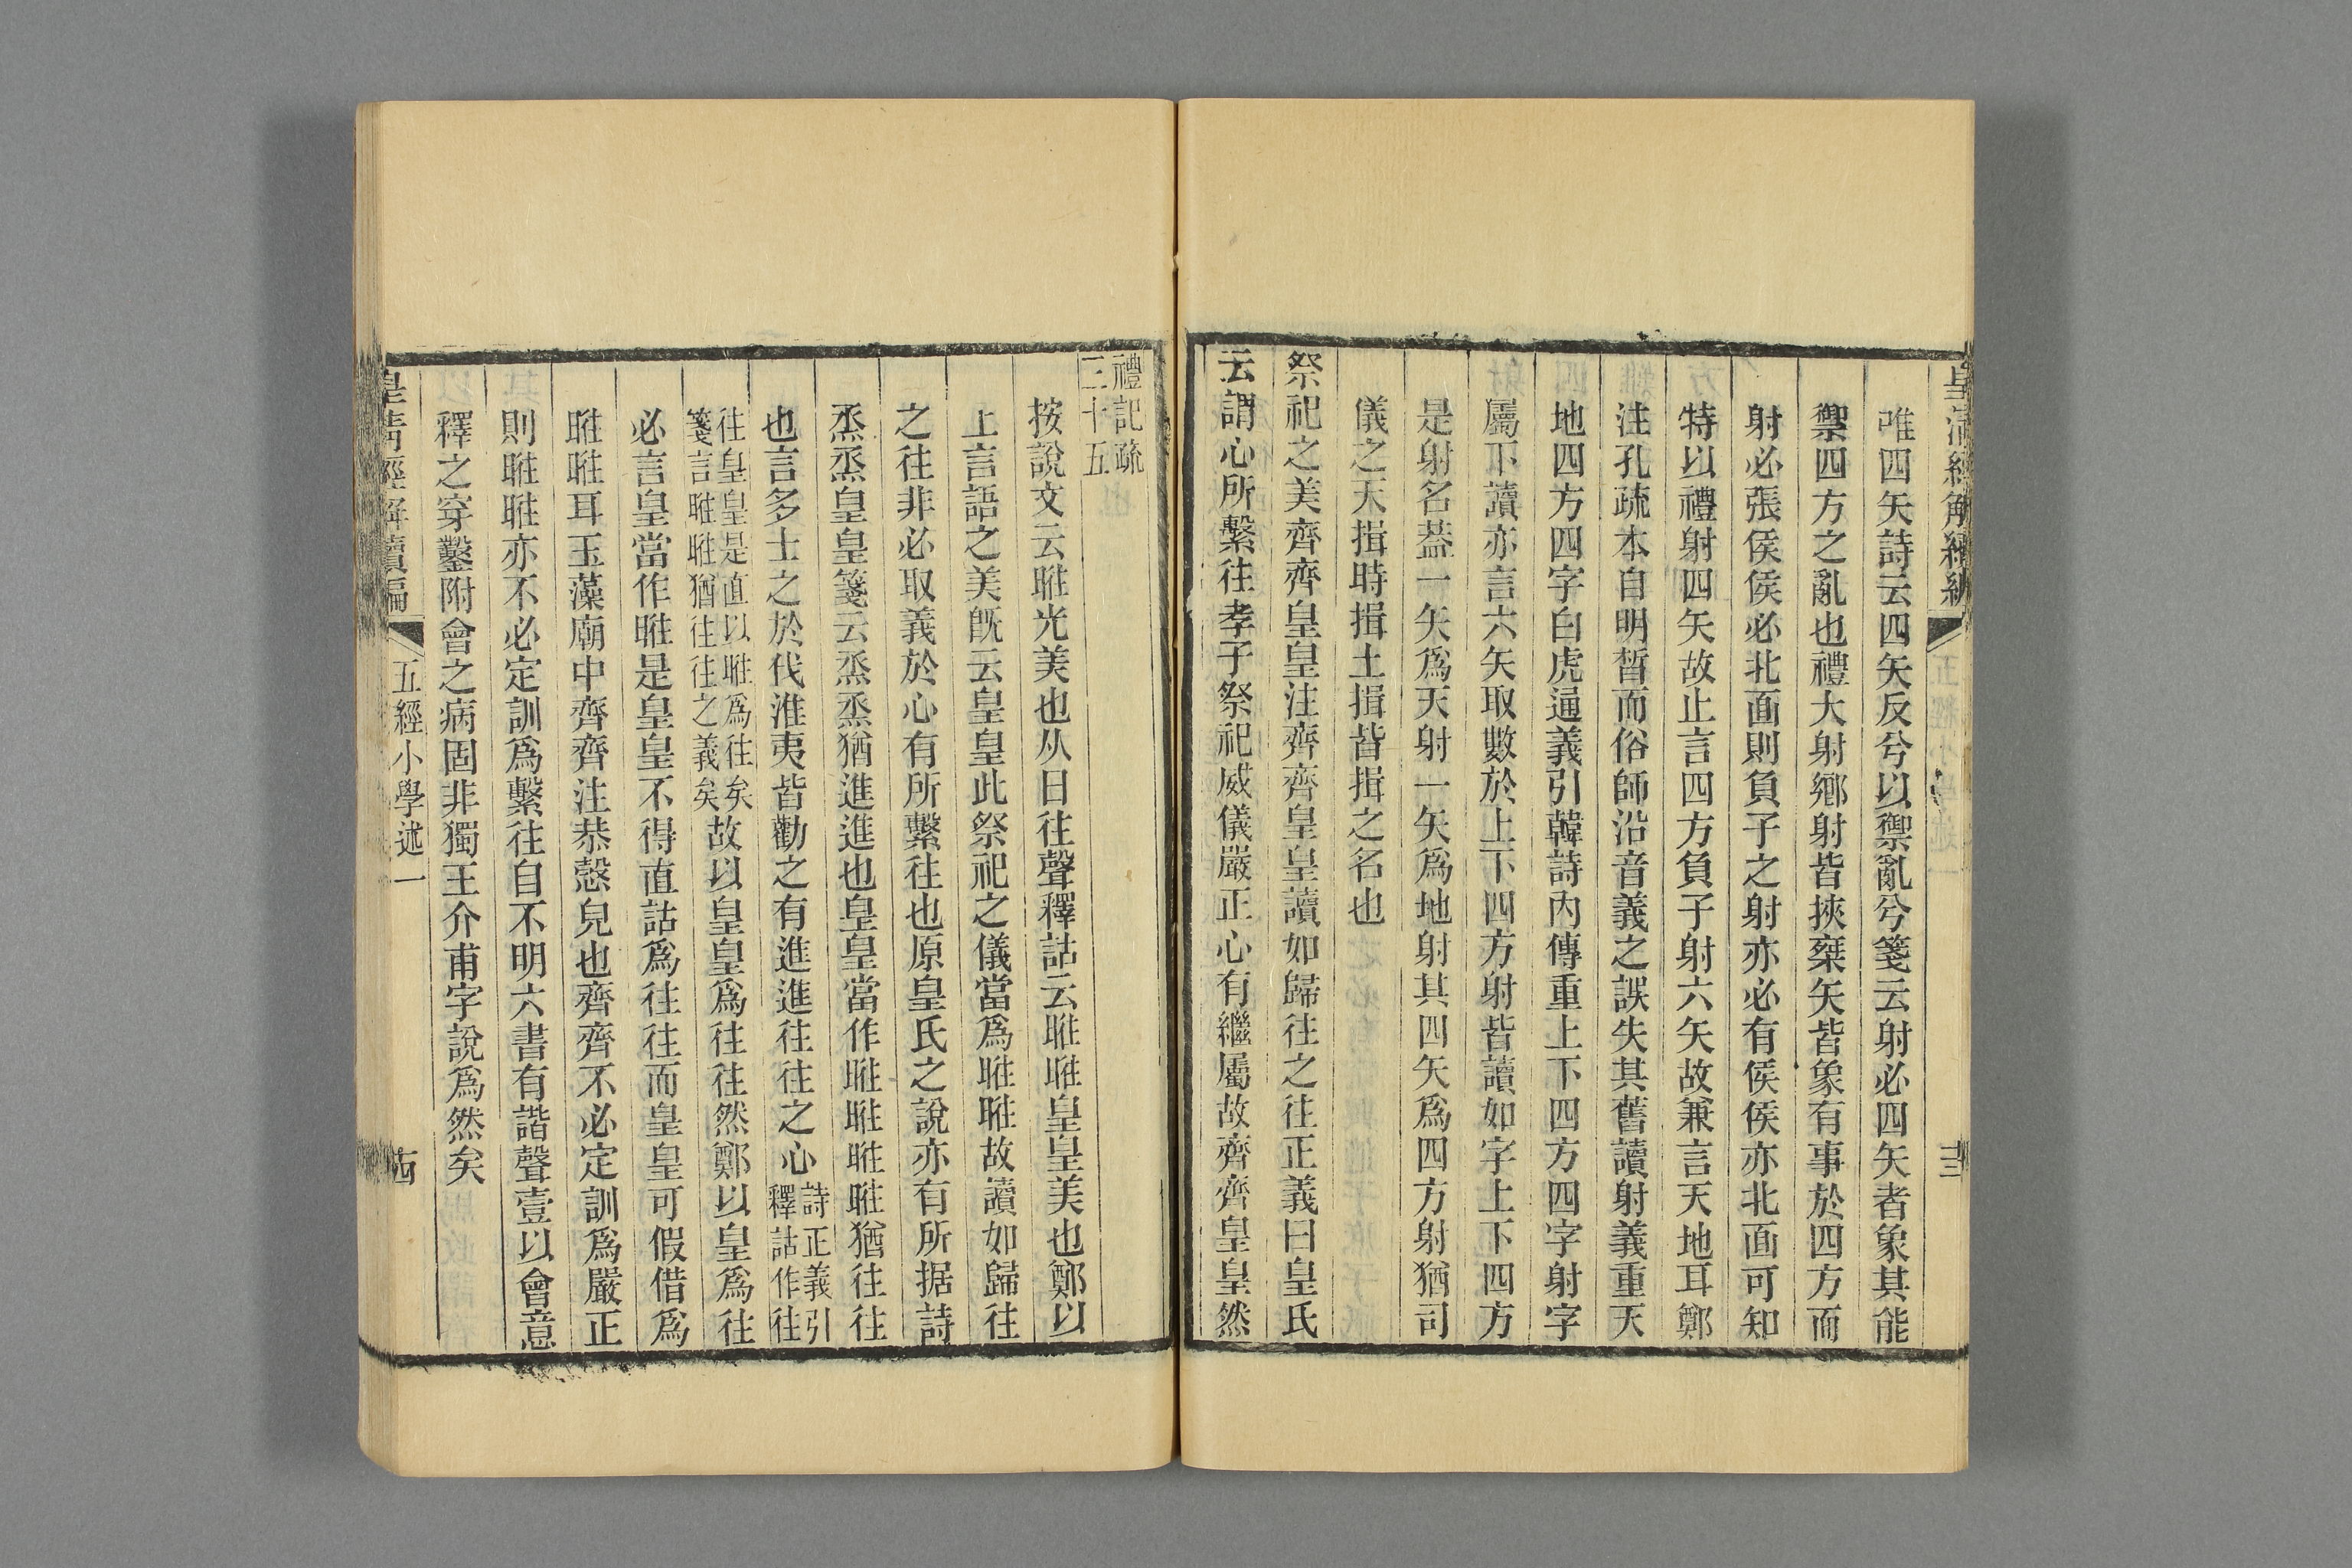 皇清經解續編
唯四矢詩云四矢反兮以禦亂兮箋云射必四矢者象其能
禦四方之亂也禮大射鄉射皆挾椉矢皆象有事於四方而
射必張侯侯必北面則負子之射亦必有侯侯亦北面可知
特以禮射四矢故止言四方負子射六矢故兼言天地耳鄭
注孔疏本自明晳而俗師沿音義之誤失其舊讀射義重天
地四方四字白虎通義引韓詩內傳重上下四方四字射字
屬下讀亦言六矢取數於上下四方射皆讀如字上下四方
是射名葢一矢爲天射一矢爲地射其四矢爲四方射猶司
儀之天揖時揖土揖皆揖之名也
祭祀之美齊齊皇皇注齊齊皇皇讀如歸往之往正義曰皇氏
云謂心所繫往孝子祭祀威儀嚴正心有繼屬故齊齊皇皇然
禮記疏
三十五
按說文云暀光美也从日往聲釋詁云暀暀皇皇美也鄭以
上言語之美旣云皇皇此祭祀之儀當爲暀暀故讀如歸往
之往非必取義於心有所繫往也原皇氏之說亦有所据詩
烝烝皇皇箋云烝烝猶進進也皇皇當作暀暀暀暀猶往往
也言多士之於伐淮夷皆勸之有進進往往之心詩正義引釋詁作往
往皇皇是直以暀爲往矣箋言暀暀猶往往之義矣故以皇皇爲往往然鄭以皇爲往
必言皇當作暀是皇皇不得直詁爲往往而皇皇可假借爲
暀暀耳玉藻廟中齊齊注恭愨皃也齊齊不必定訓爲嚴正
則暀暀亦不必定訓爲繫往自不明六書有諧聲壹以會意
釋之穿鑿附會之病固非獨王介甫字說爲然矣
皇清經解續編
五經小學述一